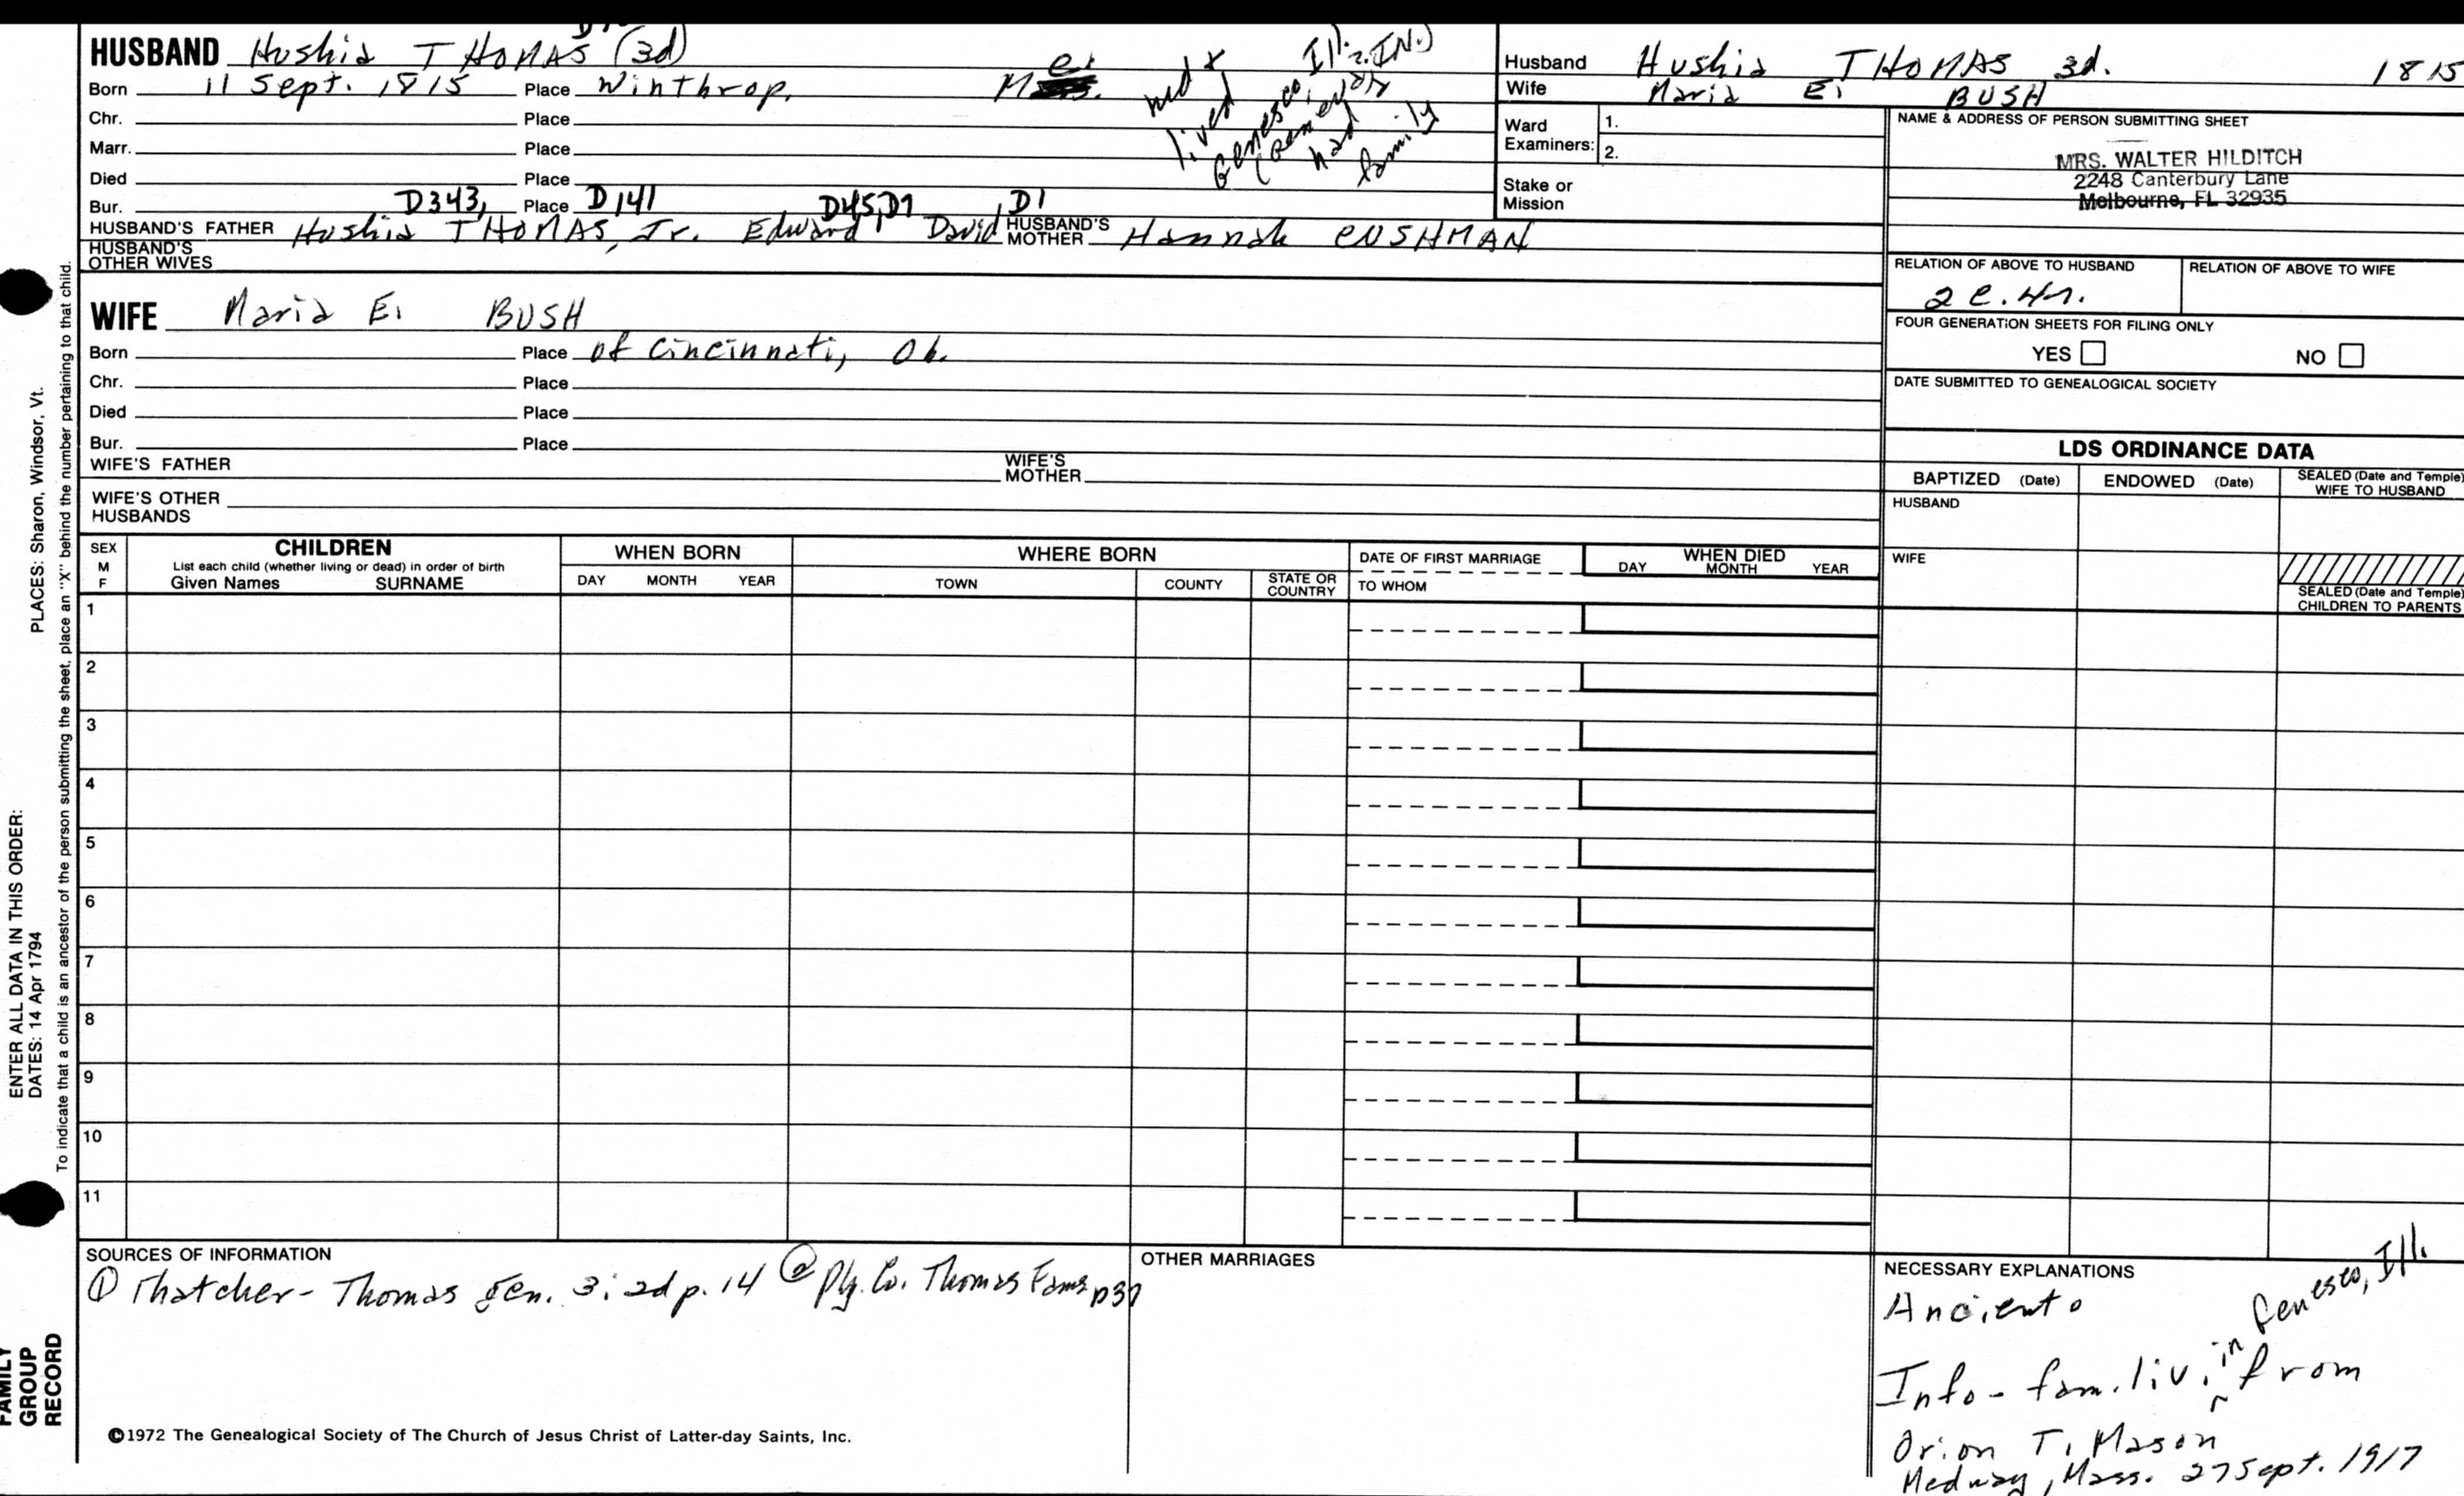 HUSBAND Hushia THOMAS (3d)
Born 11 Sept. 1815 Place Winthrop, Me.
Chr. Place
Marr. Place
Died Place
Bur. Place
D343, D141 D45,D1 D1
HUSBAND'S FATHER Hushia THOMAS, Jr. Edward David HUSBAND'S MOTHER Hannah CUSHMAN
HUSBAND'S OTHER WIVES
md &
lived
Geneseo, Ill.
had
family
WIFE Maria E. BUSH
Born Place of Cincinnati, Oh.
Chr. Place
Died Place
Bur. Place
WIFE'S FATHER WIFE'S MOTHER
WIFE'S OTHER HUSBANDS
Husband Hushia THOMAS 3d. 1815
Wife Maria E. BUSH
Ward Examiners: 1.
2.
Stake or Mission
NAME & ADDRESS OF PERSON SUBMITTING SHEET
MRS. WALTER HILDITCH
2248 Canterbury Lane
Melbourne, FL 32935
RELATION OF ABOVE TO HUSBAND RELATION OF ABOVE TO WIFE
2 c. 4r.
FOUR GENERATION SHEETS FOR FILING ONLY
YES NO
DATE SUBMITTED TO GENEALOGICAL SOCIETY
LDS ORDINANCE DATA
BAPTIZED (Date) ENDOWED (Date) SEALED (Date and Temple) WIFE TO HUSBAND
HUSBAND
WIFE
SEALED (Date and Temple) CHILDREN TO PARENTS
SEX M F
CHILDREN
List each child (whether living or dead) in order of birth
Given Names SURNAME
WHEN BORN
DAY MONTH YEAR
WHERE BORN
TOWN COUNTY STATE OR COUNTRY
DATE OF FIRST MARRIAGE
TO WHOM
WHEN DIED
DAY MONTH YEAR
1
2
3
4
5
6
7
8
9
10
11
SOURCES OF INFORMATION
① Thatcher - Thomas gen. 3: 2d p. 14 ② Ply. Co. Thomas Fams p37
OTHER MARRIAGES
NECESSARY EXPLANATIONS
Info - fam. liv. in Geneseo, Ill. from
Orion T. Mason
Medway, Mass. 27 Sept. 1917
©1972 The Genealogical Society of The Church of Jesus Christ of Latter-day Saints, Inc.
ENTER ALL DATA IN THIS ORDER:
DATES: 14 Apr 1794 PLACES: Sharon, Windsor, Vt.
To indicate that a child is an ancestor of the person submitting the sheet, place an "X" behind the number pertaining to that child.
FAMILY
GROUP
RECORD